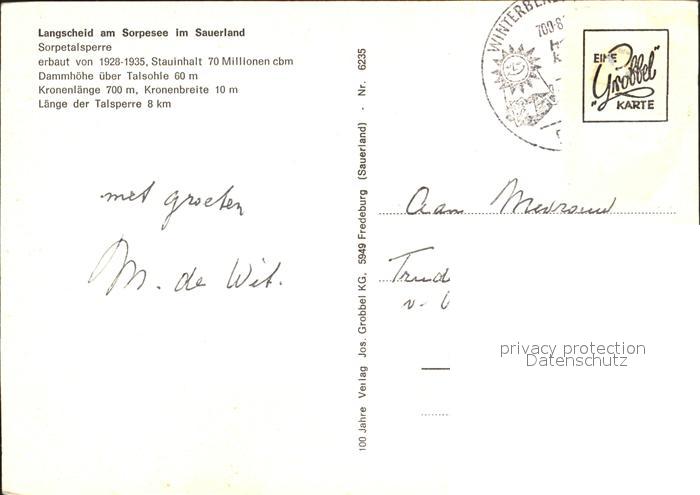 Langscheid am Sorpesee im Sauerland
Sorpetalsperre
erbaut von 1928-1935, Stauinhalt 70 Millionen cbm
Dammhöhe über Talsohle 60 m
Kronenlänge 700 m, Kronenbreite 10 m
Länge der Talsperre 8 km
met groeten
M. de Wit.
100 Jahre Verlag Jos. Grobbel KG, 5949 Fredeburg (Sauerland) - Nr. 6235
WINTERBE
EINE
"Grobbel"
KARTE
Aan
Trud
v.
privacy protection
Datenschutz